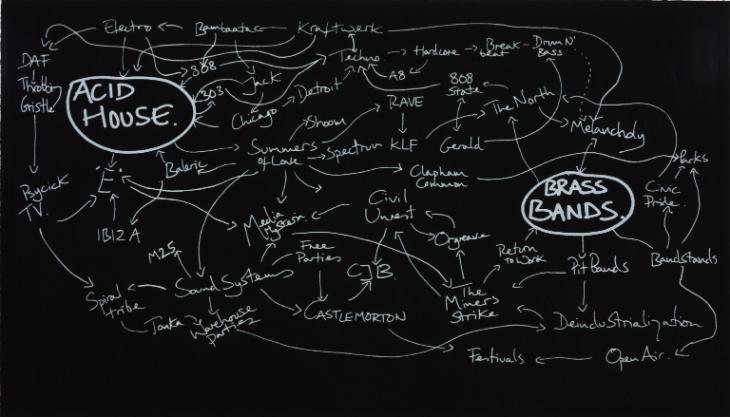 Electro
Bambaataa
Kraftwerk
DAF
Throbbing
Gristle
ACID
HOUSE.
808
303
Jack
Chicago
Detroit
Techno
Hardcore
Break
beat
Drum N'
Bass
A8
808
State
RAVE
The North
Melancholy
Shoom
Summers
of Love
Spectrum
KLF
Gerald
Clapham
Common
Parks
Balearic
'E'
Psychick
T.V.
IBIZA
Media
Hysteria.
Civil
Unrest
BRASS
BANDS.
Civic
Pride.
M25
Free
Parties
C J B.
Orgreave
Return
to Work
Pit Bands
Bandstands
Spiral
tribe
Sound Systems
The
Miners
Strike
Tonka
Warehouse
Parties
CASTLEMORTON
Deindustrialization
Festivals
Open Air.